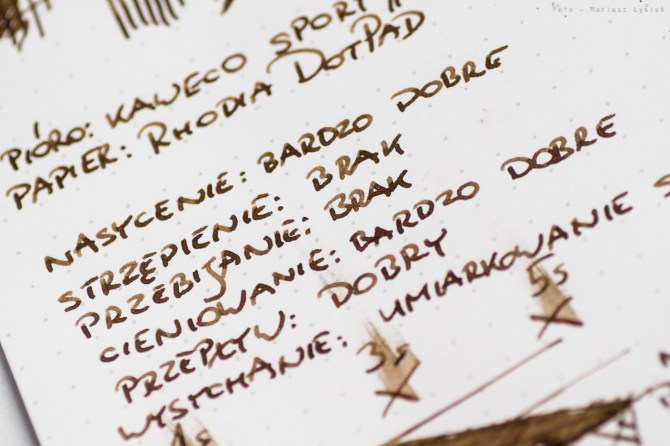 Foto - Mariusz Łysień
PIÓRO: KAWECO SPORT
PAPIER: RHODIA DOTPAD
NASYCENIE: BARDZO DOBRE
STRZĘPIENIE: BRAK
PRZEBIJANIE: BRAK
CIENIOWANIE: BARDZO DOBRE
PRZEPŁYW: DOBRY
WYSYCHANIE: UMIARKOWANIE
3s 5s